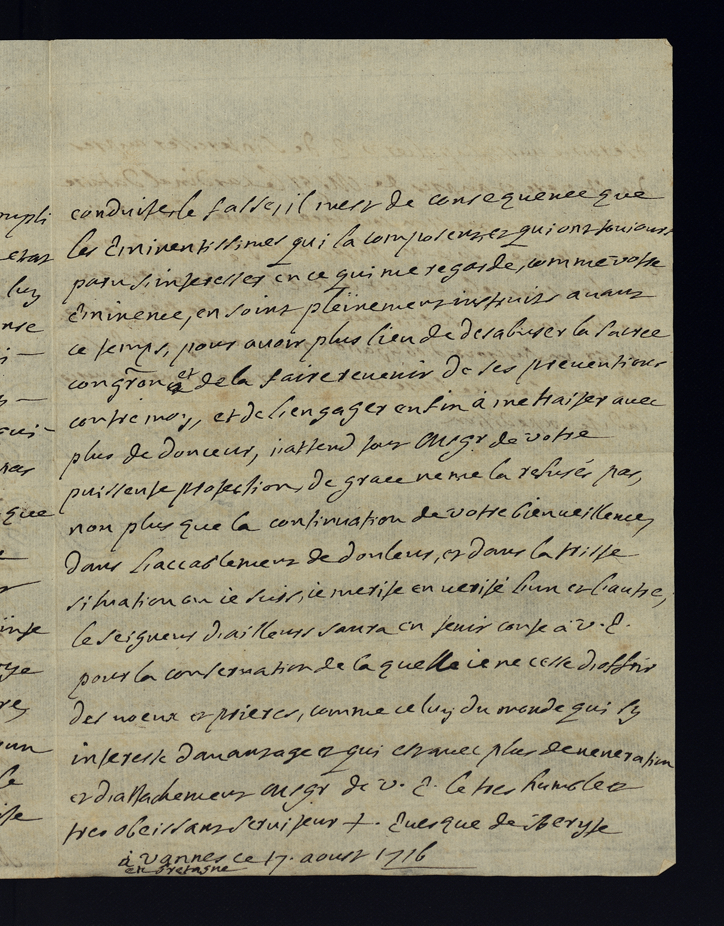 conduise le fasse, il m'est de consequence que
les Eminentissimes qui la composent, et qui ont toujours
paru s'interesser en ce qui me regarde, comme votre
Eminence, en soint pleinement instruits avant
ce temps, pour avoir plus lieu de desabuser la Sacrée
congr̃on et de la faire revenir de ses preventions
contre moy, et de l'engager enfin à me traiter avec
plus de douceur, j'attend tout Msgr de votre
puissente protection, de grace ne me la refusés pas,
non plus que la continuation de votre bienveillence,
dans l'accablement de douleur, et dans la triste
situation ou ie suis, ie merite en verité l'un et l'autre,
le seigneur d'ailleurs saura en tenir conte à v. E.
pour la conservation de la quelle ie ne cesse d'offrir
des voeux et prieres, comme celuy du monde qui s'y
interesse d'avantage et qui est avec plus de veneration
et d'attachement Msgr de v. E. le tres humble et
tres obeissant serviteur +. Evesque de
à Vannes ce 17. aoust 1716
en bretagne
mpli
etat
luy
nse
que